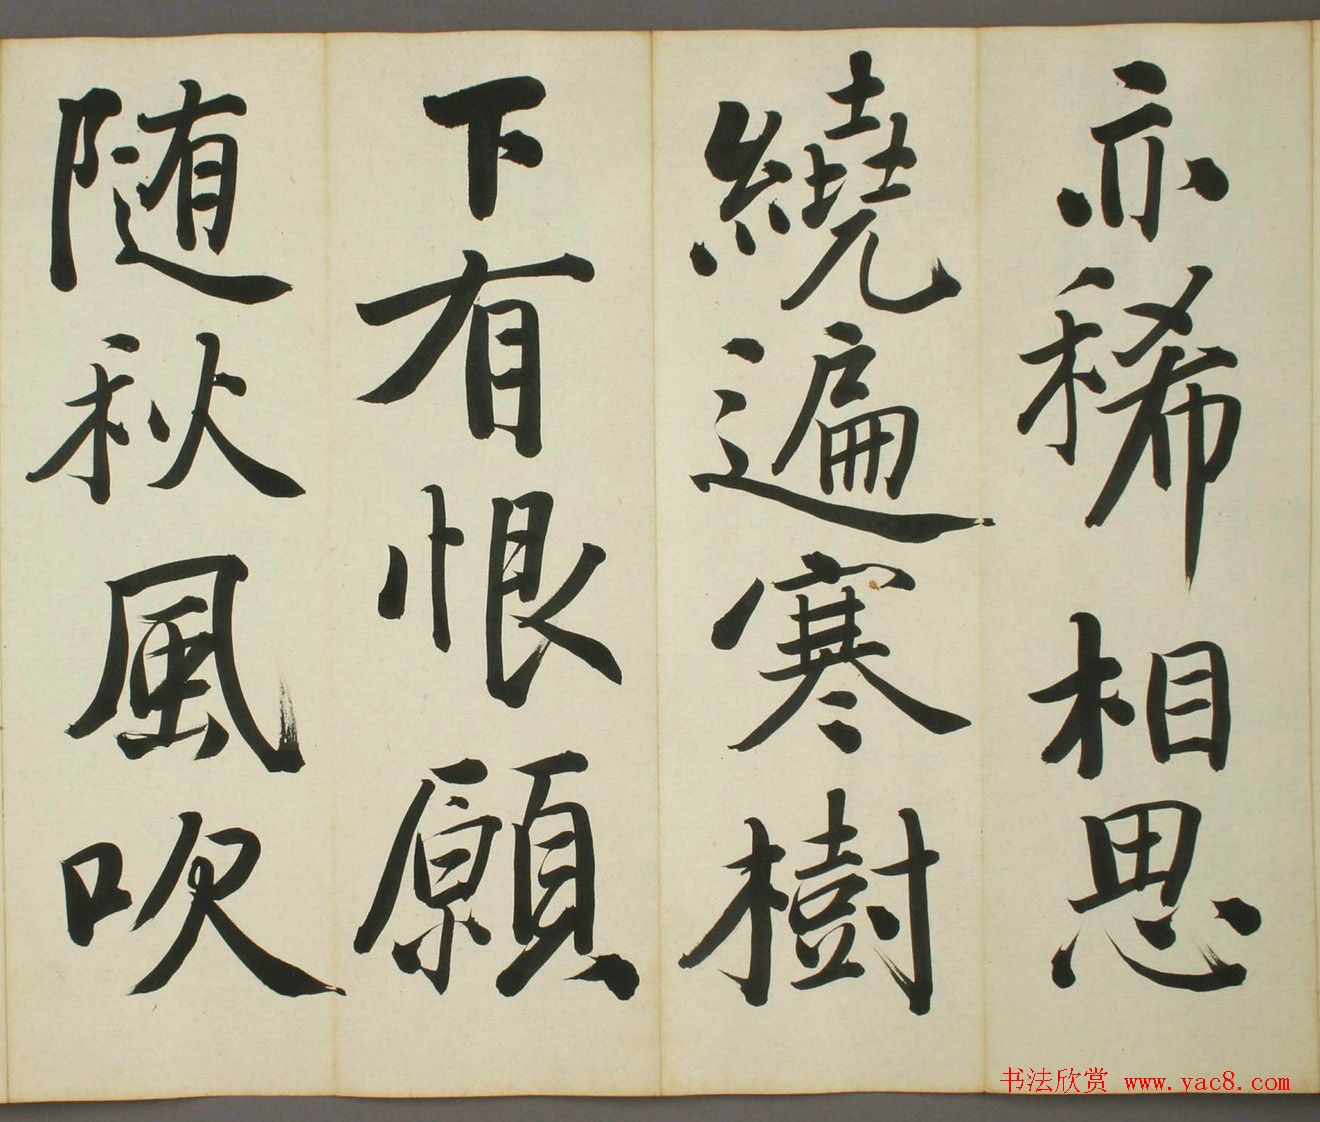 亦稀相思
繞遍寒樹
下有恨願
随秋風吹
书法欣赏 www.yac8.com